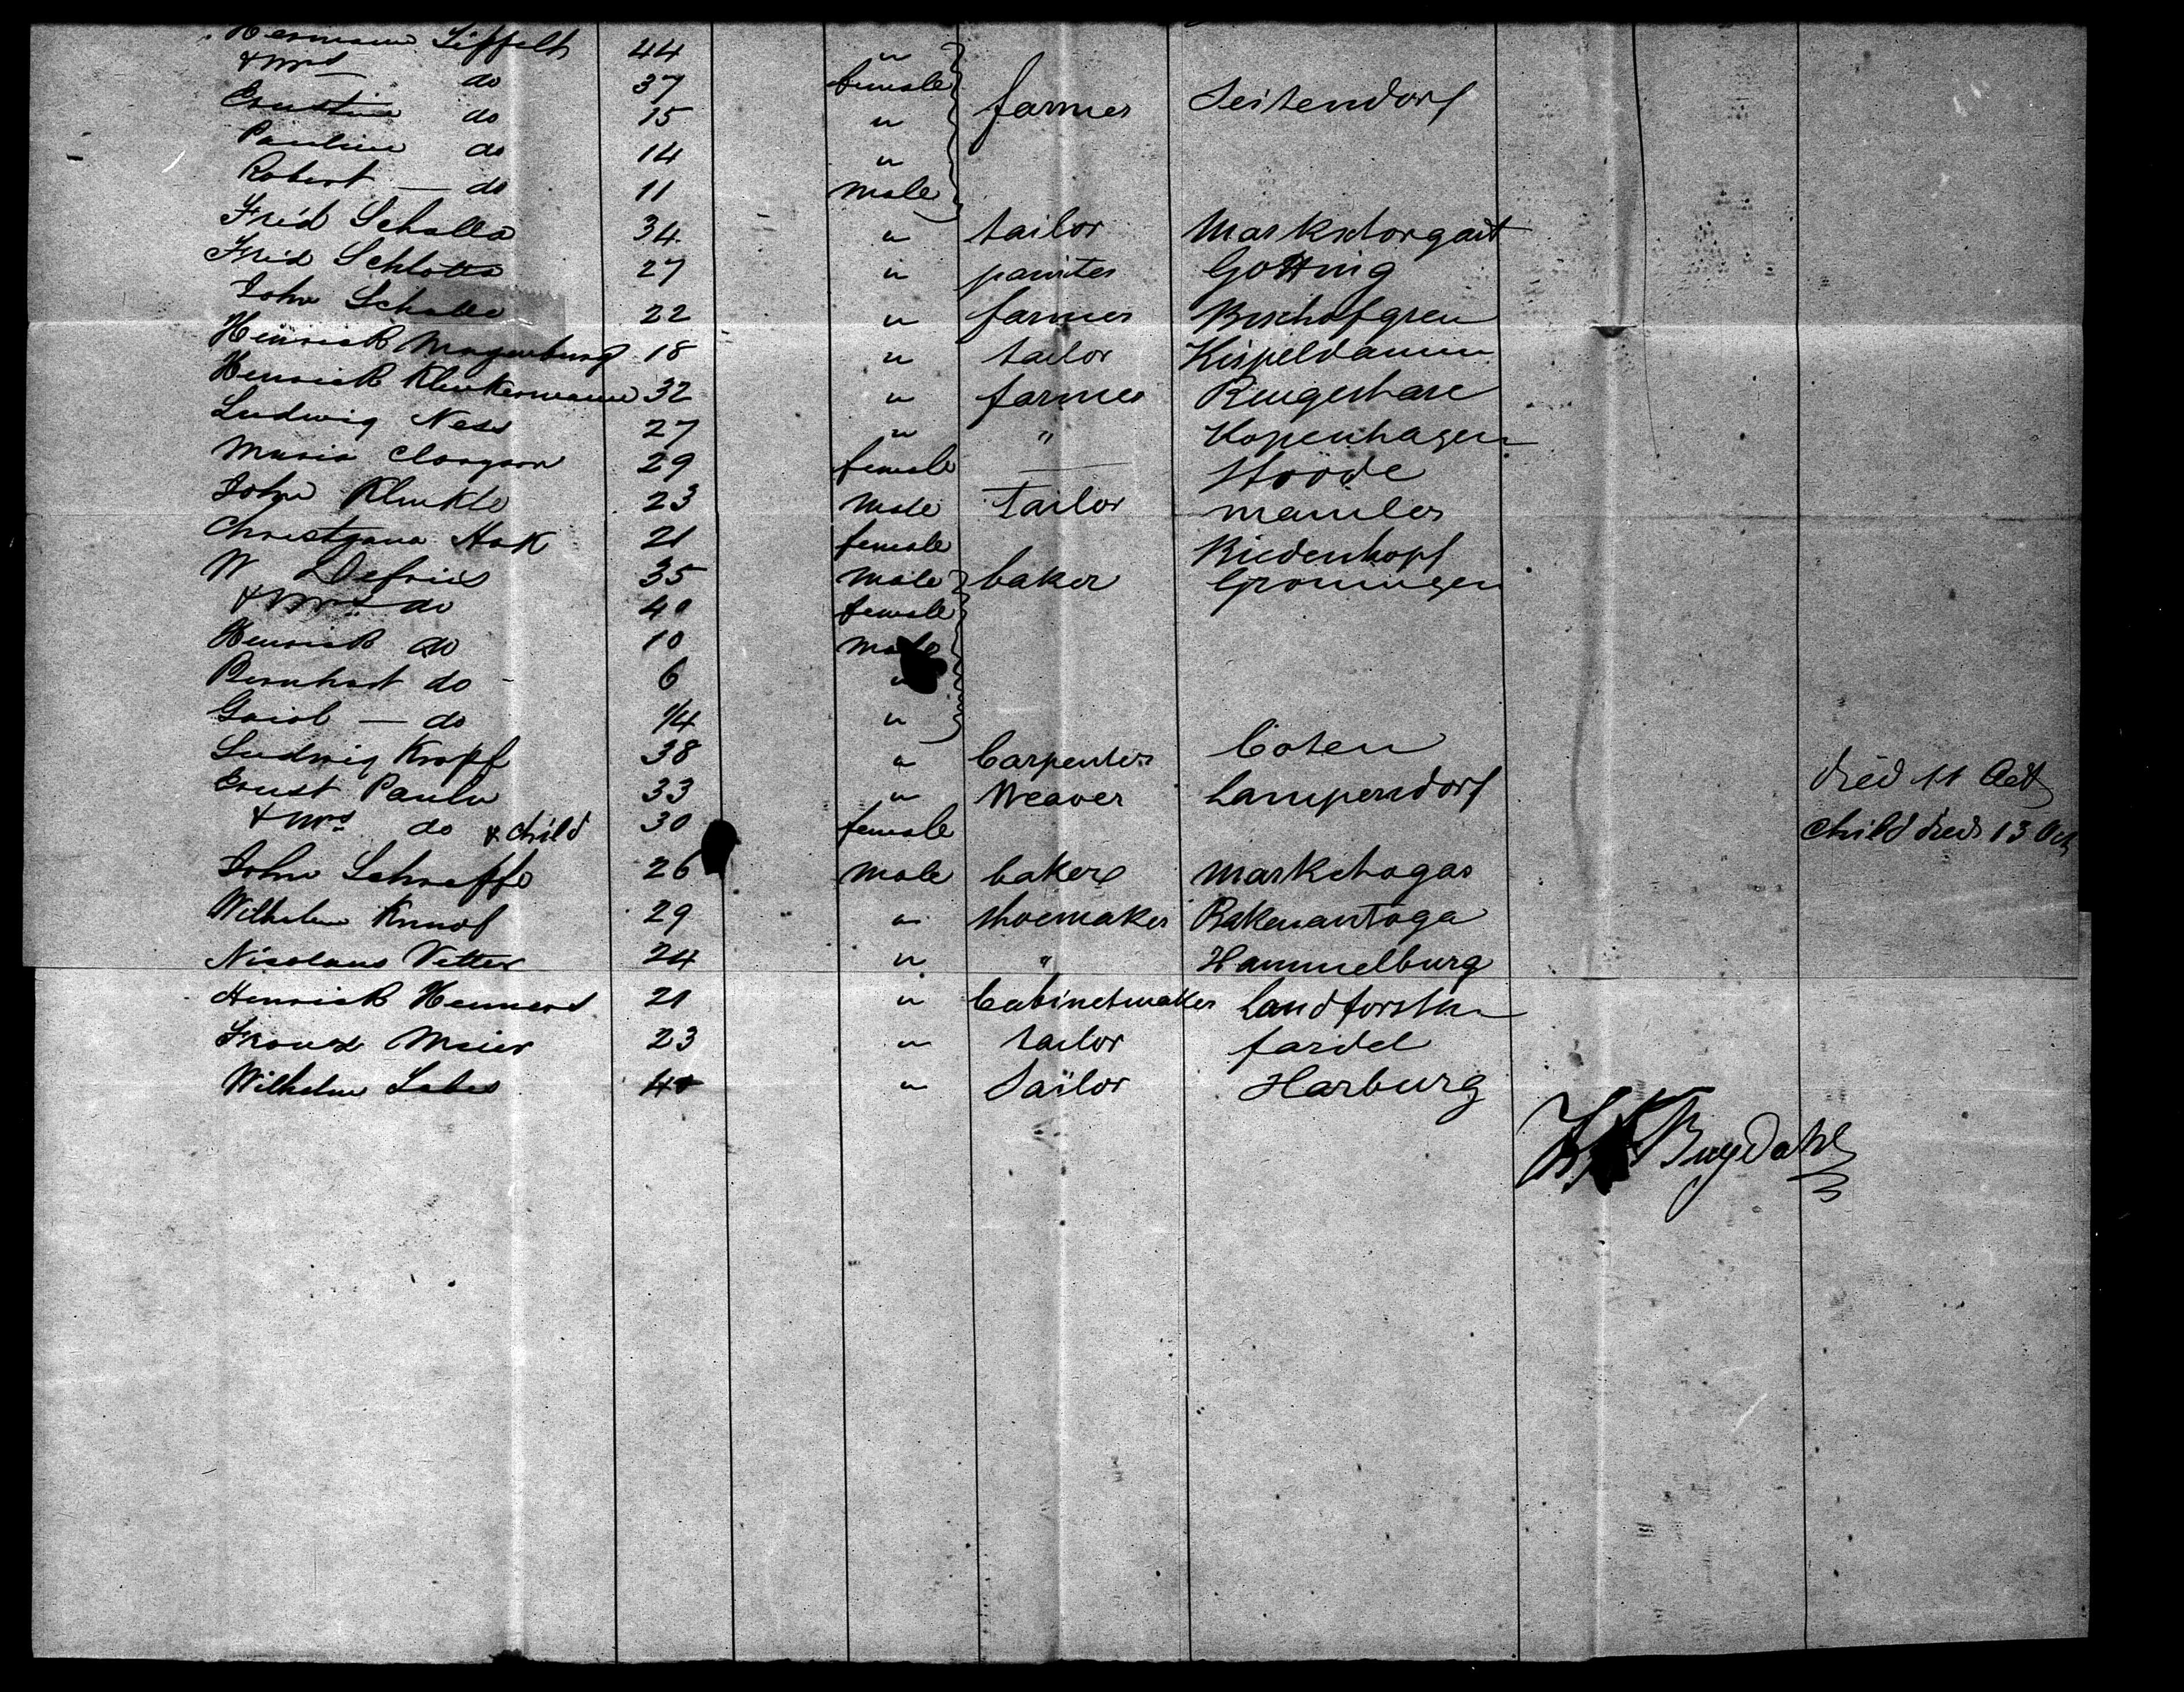 Hermann Siffelt 44 " farmer Seitendorf
& Mrs do 37 female
Ernstine do 15 "
Pauline do 14 "
Robert — do 11 male
Fried Scholla 34 " tailor Markschorgast
Fried Schlotta 27 " painter Gotting
John Scholle 22 " farmer Bischofgren
Heinrich Magenburg 18 " tailor Kispeldamm
Henrich Klenkermann 32 " farmer Rengeshare
Ludwig Ness 27 " " Kopenhagen
Maria Clangson 29 female — Stoode
John Klenkle 23 male Tailor
21 female Biedenkopf
W Defries 35 male baker Groningen
& Mrs do 40 female
Henrich do 10 male
Bernhart do 6 "
do 1/4 "
Ludwig Kropf 38 " Carpenter Coten
Ernst Paulu 33 " Weaver Lampersdorf died 11 Oct
& Mrs do & child 30 female child died 13 Oct
John Schreffe 26 male baker Markchogas
Wilhelm Knuof 29 " shoemaker
Nicolaus Vetter 24 " " Hammelburg
Henrich Henners 21 " Cabinetmaker Landforstn
Franz Meier 23 " tailor fardel
Wilhelm Labes " Sailor Harburg